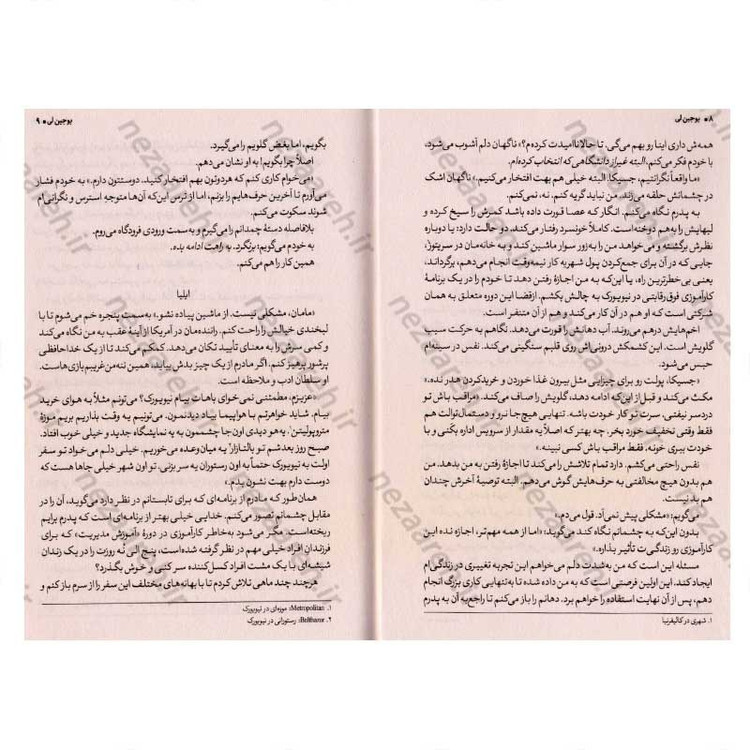 ۸ • یوجین لی
همه‌ش داری اینا رو بهم می‌گی. تا حالا ناامیدت کرده‌م؟» ناگهان دلم آشوب می‌شود،
با خودم فکر می‌کنم، البته غیر از دانشگاهی که انتخاب کرده‌ام.
«ما واقعاً نگرانتیم، جسیکا. البته خیلی هم بهت افتخار می‌کنیم.» ناگهان اشک
در چشمانش حلقه می‌زند. من نباید گریه کنم. نه، نمی‌کنم.
به پدرم نگاه می‌کنم. انگار که عصا قورت داده باشد کمرش را سیخ کرده و
لبهایش را به‌هم دوخته است. کاملاً خونسرد رفتار می‌کند. دو حالت دارد: یا دوباره
نظرش برگشته و می‌خواهد من را به‌زور سوار ماشین کند و به خانه‌مان در سریتوز۱،
جایی که در آن برای جمع‌کردن پول شهریه کار نیمه‌وقت انجام می‌دهم، برگرداند،
یعنی بی‌خطرترین راه، یا این‌که به من اجازهٔ رفتن دهد تا خودم را در یک برنامهٔ
کارآموزی فوق‌رقابتی در نیویورک به چالش بکشم. از قضا این دوره متعلق به همان
شرکتی است که او هم در آن کار می‌کند و هم از آن متنفر است.
اخم‌هایش درهم می‌روند. آب دهانش را قورت می‌دهد. نگاهم به حرکت سیب
گلویش است. این کشمکش درونی‌اش روی قلبم سنگینی می‌کند. نفس در سینه‌ام
حبس می‌شود.
«جسیکا، پولت رو برای چیزایی مثل بیرون غذا خوردن و خریدکردن هدر نده.»
مکث می‌کند و قبل از این‌که ادامه دهد، گلویش را صاف می‌کند. «مراقب باش تو
دردسر نیفتی، سرت تو کار خودت باشه. تنهایی هیچ‌جا نرو و دستمال‌توالت هم
فقط وقتی تخفیف خورد بخر. چه بهتر که اصلاً یه مقدار از سرویس اداره بکنی و با
خودت ببری خونه، فقط مراقب باش کسی نبینه.»
نفس راحتی می‌کشم. دارد تمام تلاشش را می‌کند تا اجازهٔ رفتن به من بدهد. من
هم بدون هیچ مخالفتی به حرف‌هایش گوش می‌دهم. البته توصیهٔ آخرش چندان
هم بد نیست.
می‌گویم: «مشکلی پیش نمی‌آد. قول می‌دم.»
بدون این‌که به چشمانم نگاه کند می‌گوید: «اما از همه مهم‌تر، اجازه نده این
کارآموزی رو زندگی‌ت تأثیر بذاره.»
مسئله این است که من به‌شدت دلم می‌خواهم این تجربه تغییری در زندگی‌ام
ایجاد کند. این اولین فرصتی است که به من داده شده تا به‌تنهایی کاری بزرگ انجام
دهم، پس از آن نهایت استفاده را خواهم برد. دهانم را باز می‌کنم تا راجع به آن به پدرم
۱. شهری در کالیفرنیا
یوجین لی • ۹
بگویم، اما بغض گلویم را می‌گیرد.
اصلاً چرا بگویم! به او نشان می‌دهم.
«می‌خوام کاری کنم که هردوتون بهم افتخار کنید. دوستتون دارم.» به خودم فشار
می‌آورم تا آخرین حرف‌هایم را بزنم، اما از ترس این‌که آن‌ها متوجهِ استرس و نگرانی‌ام
شوند سکوت می‌کنم.
بلافاصله دستهٔ چمدانم را می‌گیرم و به سمت ورودی فرودگاه می‌روم.
به خودم می‌گویم: برنگرد. به راهت ادامه بده.
همین کار را هم می‌کنم.
ایلیا
«مامان، مشکلی نیست. از ماشین پیاده نشو.» به‌سمت پنجره خم می‌شوم تا با
لبخندی خیالش را راحت کنم. راننده‌مان در آمریکا از آینهٔ عقب به من نگاه می‌کند
و کمی سرش را به معنای تأیید تکان می‌دهد. کمکم می‌کند تا از یک خداحافظی
پرشور پرهیز کنم. اگر مادرم از یک چیز بدش بیاید، همین ننه‌من‌غریبم بازی‌هاست.
او سلطان ادب و ملاحظه است.
«عزیزم، مطمئنی نمی‌خوای باهات بیام نیویورک؟ می‌تونم مثلاً به هوای خرید
بیام. شاید خواهرتم با هواپیما بیاد دیدنمون. می‌تونیم یه وقت بذاریم بریم موزهٔ
متروپولیتن۱. یه‌هو دیدی اون جا چشممون به یه نمایشگاه جدید و خیلی خوب افتاد.
صبح روز بعدشم تو بالتازار۲ یه میان‌وعده می‌خوریم. خیلی دلم می‌خواد تو سفر
اولت به نیویورک حتماً به اون رستوران یه سر بزنی. تو اون شهر خیلی جاها هست که
دوست دارم بهت نشون بدم.»
همان‌طور که مادرم از برنامه‌ای که برای تابستانم در نظر دارد می‌گوید، آن را در
مقابل چشمانم تصور می‌کنم. خدایی خیلی بهتر از برنامه‌ای است که پدرم برایم
ریخته‌است. مگر می‌شود به‌خاطر کارآموزی در دورهٔ «آموزش مدیریت» که برای
فرزندان افراد خیلی مهم در نظر گرفته شده‌است، پنج الی نُه روزت را در یک زندان
شیشه‌ای با یک مشت افراد کسل‌کننده سر کنی و خوش بگذرد؟
هرچند چند ماهی تلاش کردم تا با بهانه‌های مختلف این سفر را از سرم باز کنم و
۱. Metropolitan: موزه‌ای در نیویورک
۲. Balthazar: رستورانی در نیویورک
nezaareh.ir